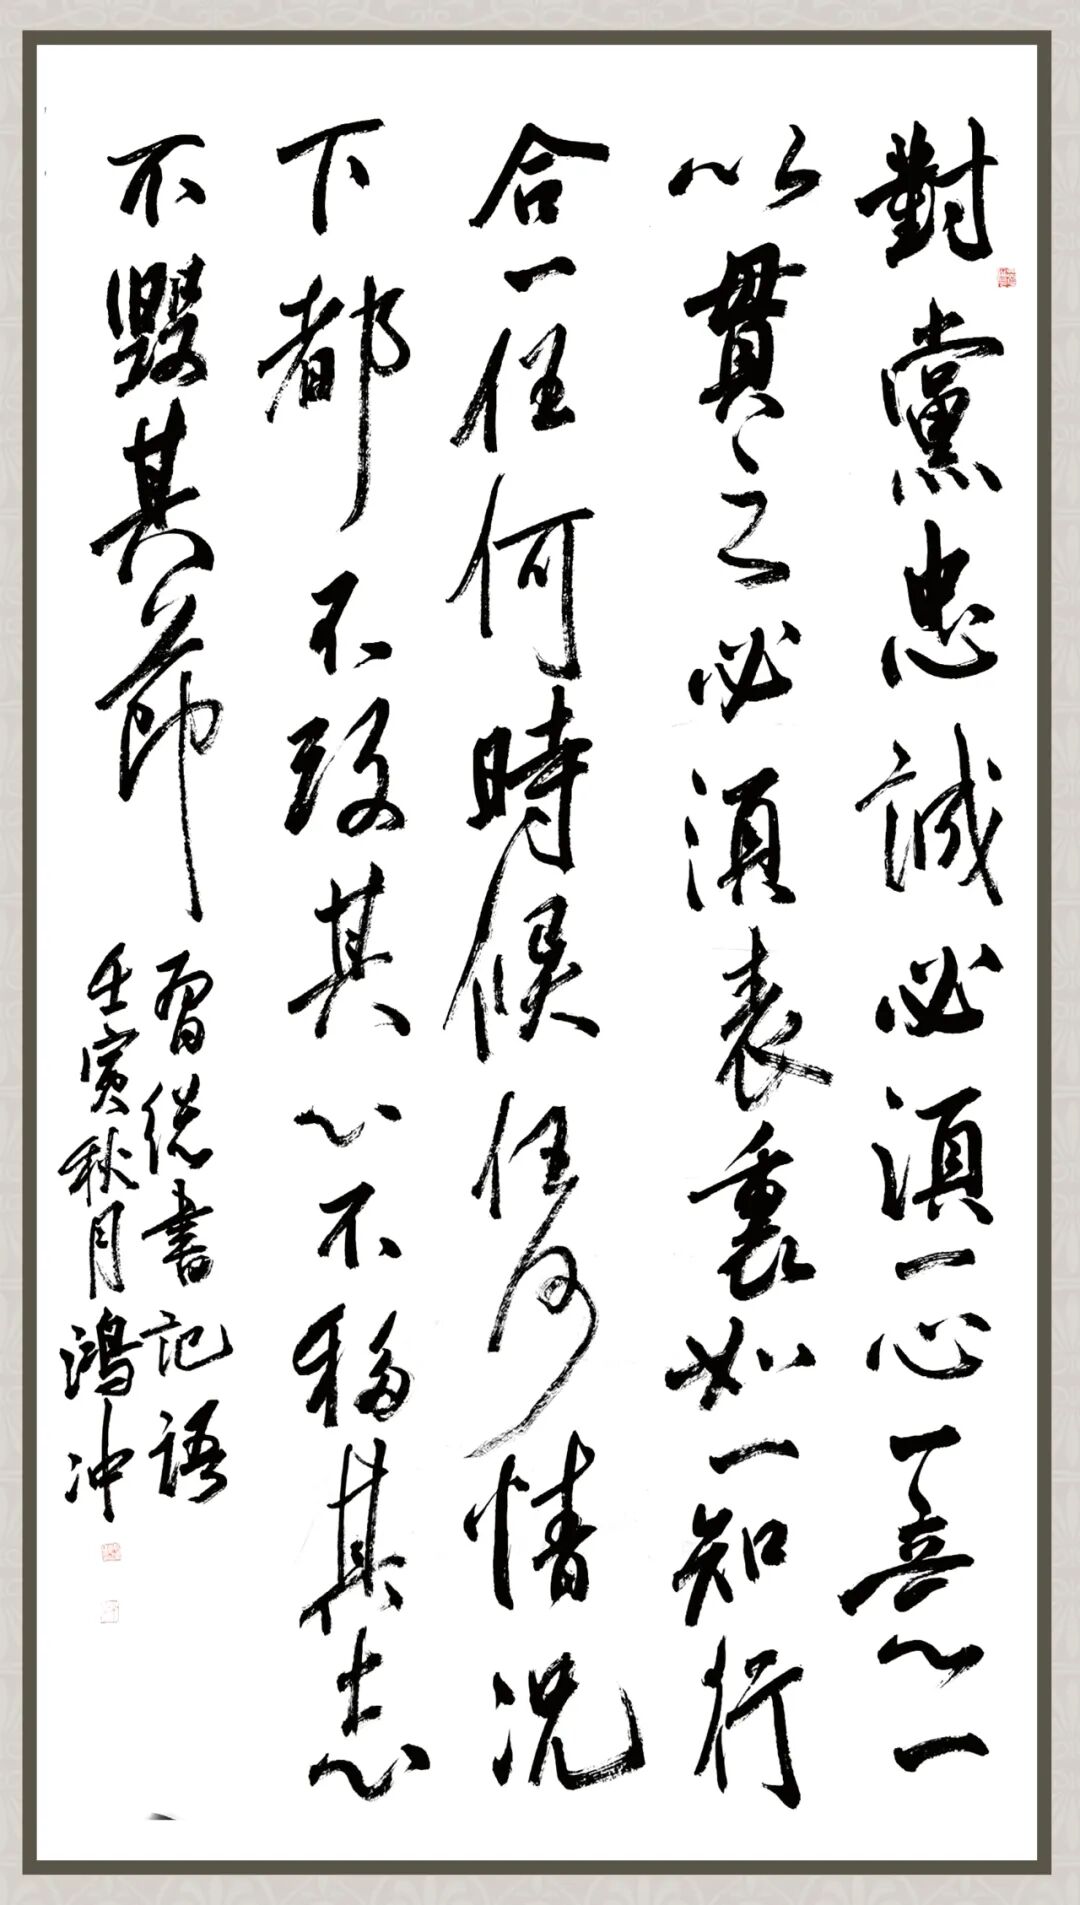 對黨忠誠必須一心一意一
以貫之必須表裏如一知行
合一任何時候任何情況
下都不改其心不移其志
不毀其節
習總書記語
壬寅秋月鴻冲